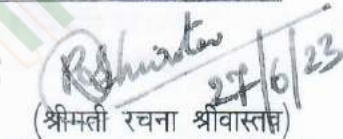 RShrivastav
27/6/23
(श्रीमती रचना श्रीवास्तव)